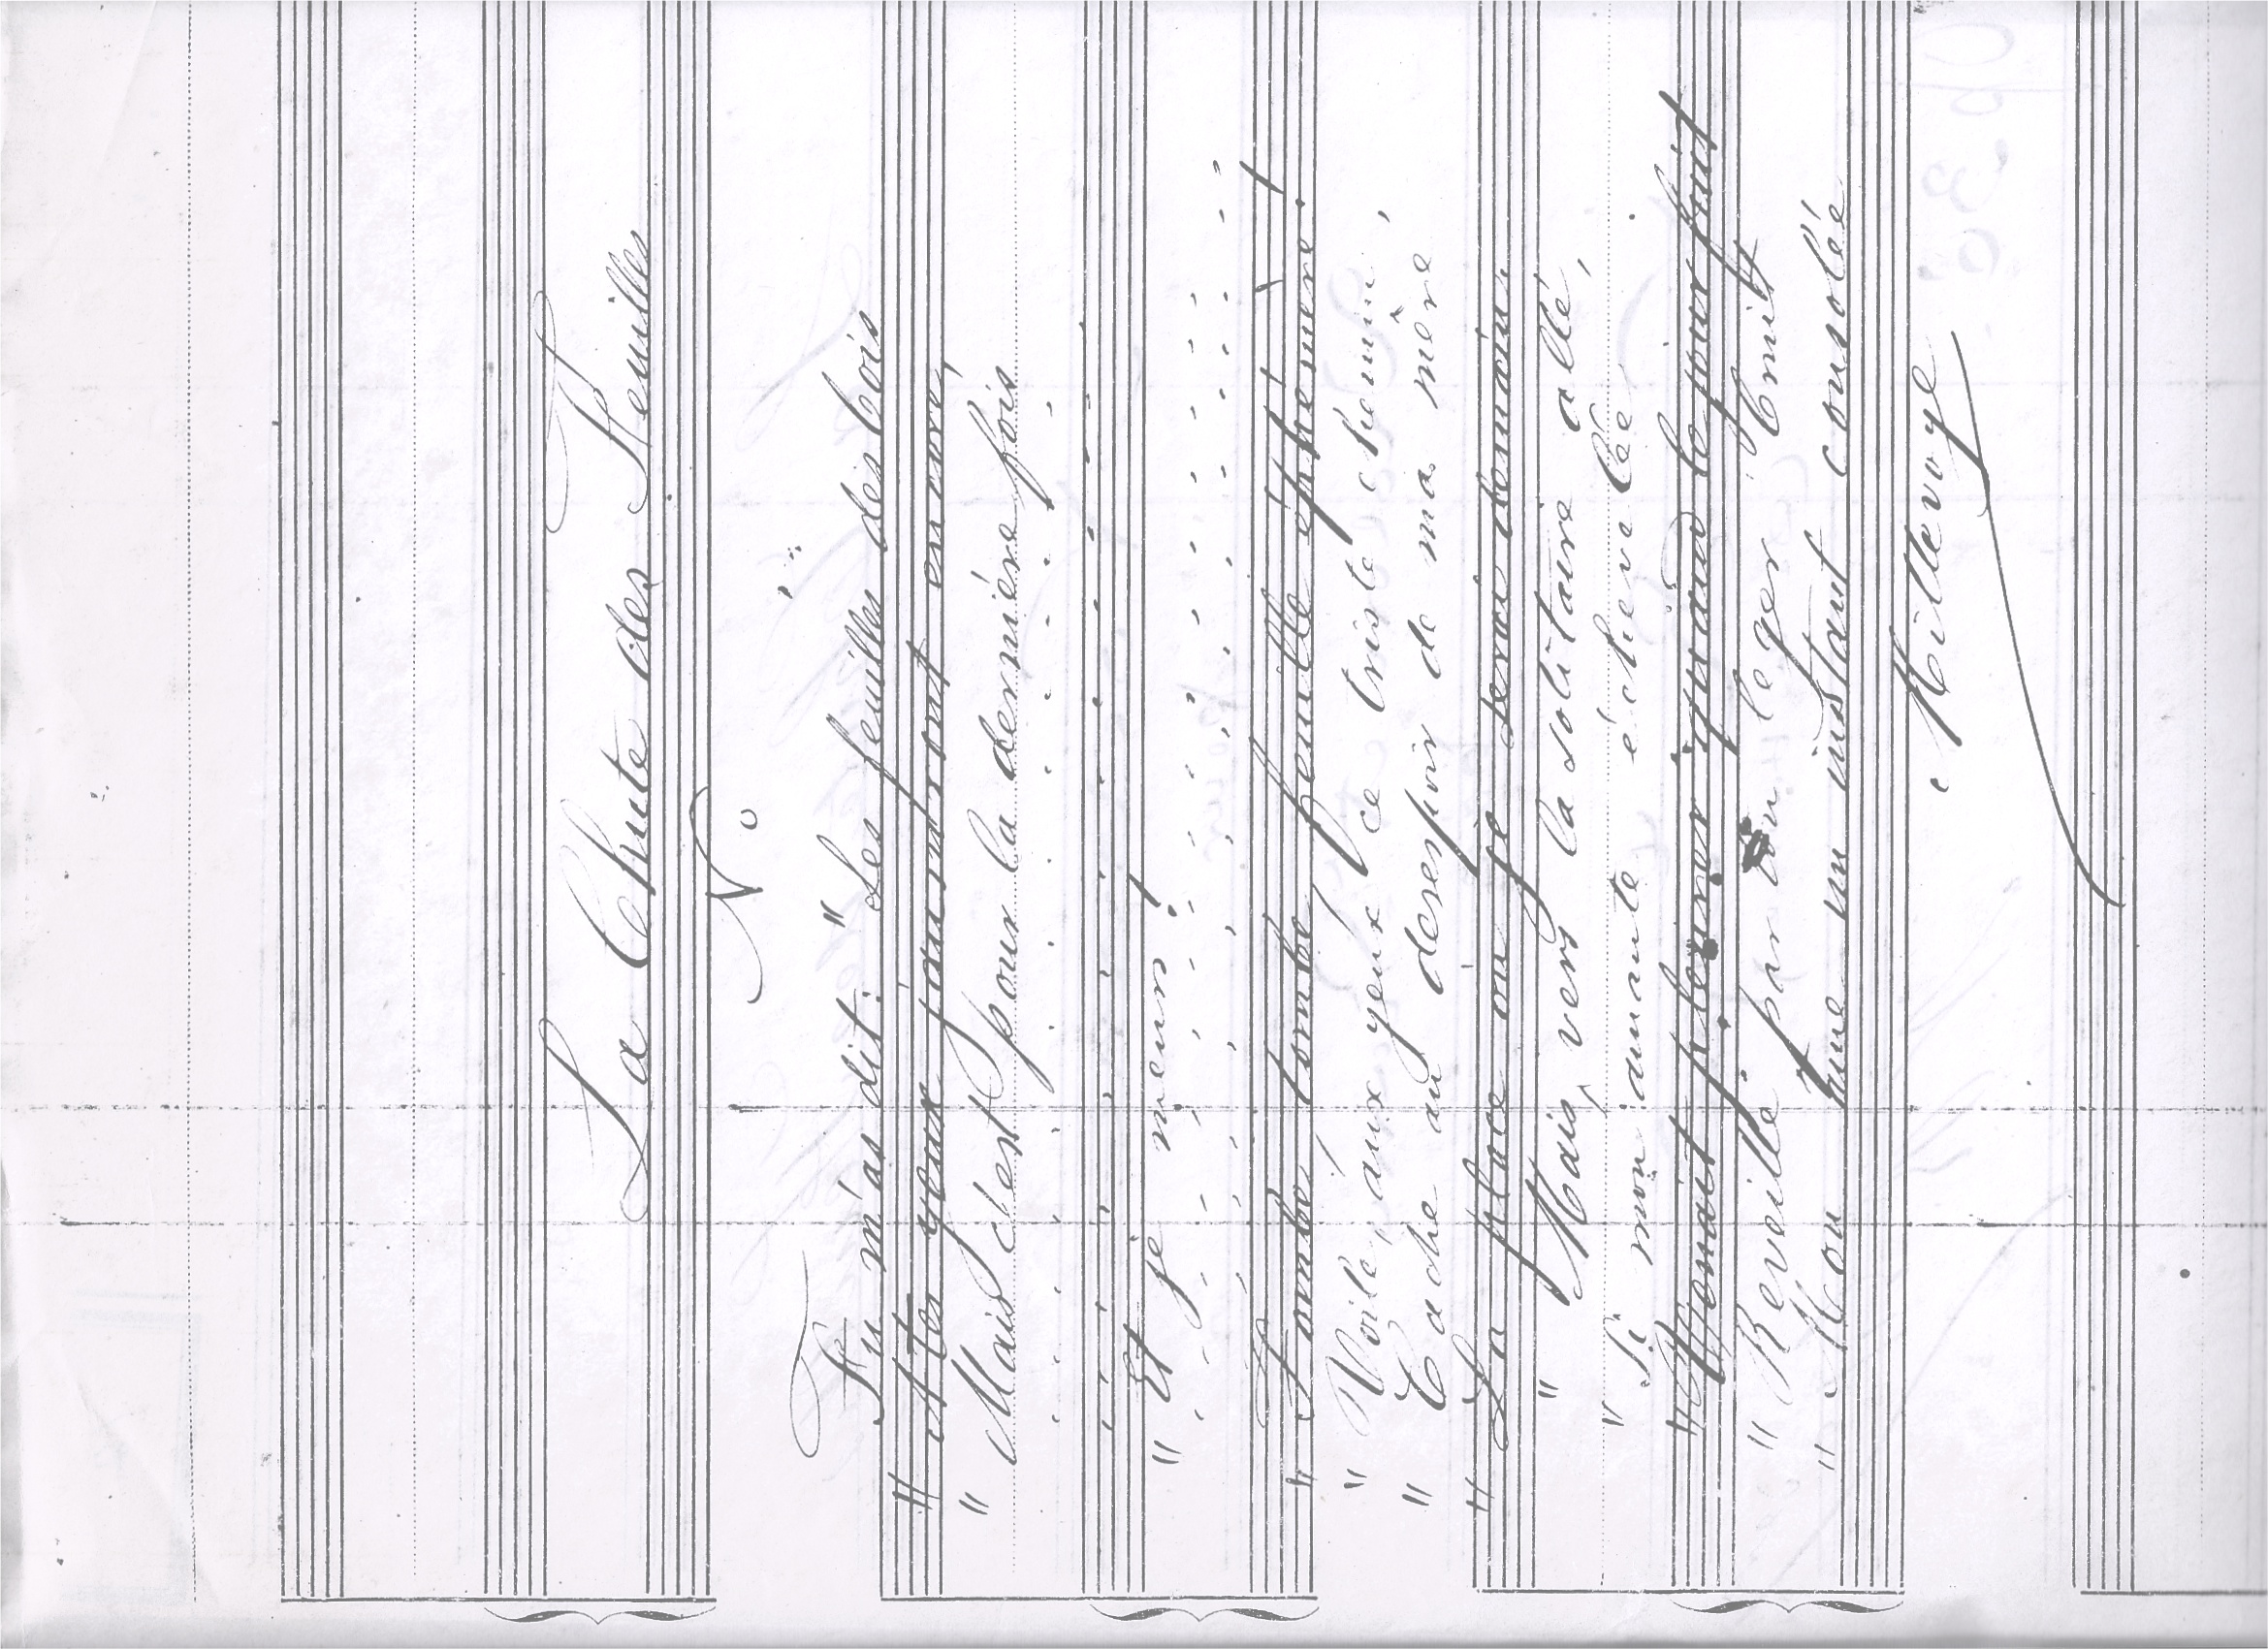 La Chute des Feuilles
No
Tu m'as dit: "Les feuilles des bois
"A tes yeux jauniront encore,
"Mais c'est pour la dernière fois
. . . . . . . . . . . .
. . . . . . . . . . . .
"Et je meurs!
. . . . . . . . . . . .
. . . . . . . . . . . .
"Tombe, tombe feuille éphémère!
"Voile aux yeux ce triste chemin,
"Cache au desespoir de ma mère
"La place ou je serai demain.
"Mais, vers la solitaire allé,
"Si mon amante échevelée,
"Venait pleurer quand le jour fuit
"Réveille par ton leger bruit
"Mon âme un instant consolée
Millevoye